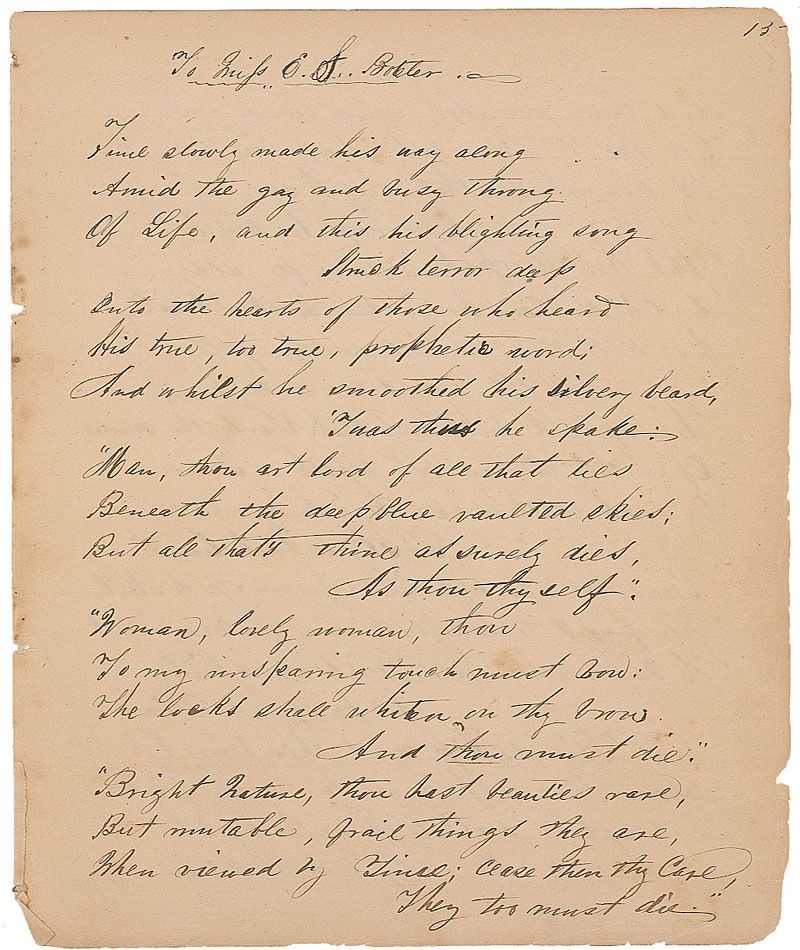 15
To Miss E. S. Botter.
Time slowly made his way along
Amid the gay and busy throng
Of Life, and this his blighting song
Struck terror deep
Into the hearts of those who heard
His true, too true, prophetic word;
And whilst he smoothed his silvery beard,
'Twas thus he spake:
"Man, thou art lord of all that lies
Beneath the deep blue vaulted skies;
But all that's thine as surely dies,
As thou thyself".
"Woman, lovely woman, thou
To my unsparing touch must bow:
The locks shall whiten on thy brow.
And thou must die".
"Bright Nature, thou hast beauties rare,
But mutable, frail things they are,
When viewed by Time; cease then thy Care,
They too must die."